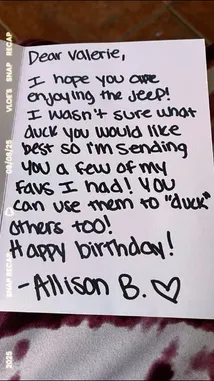 Dear Valerie,
I hope you are
enjoying the Jeep!
I wasn't sure what
duck you would like
best so I'm sending
you a few of my
favs I had! You
can use them to "duck"
others too!
Happy birthday!
-Allison B. ♡
VLOE'S SNAP RECAP
09/08/25
SNAP RECAP
2025